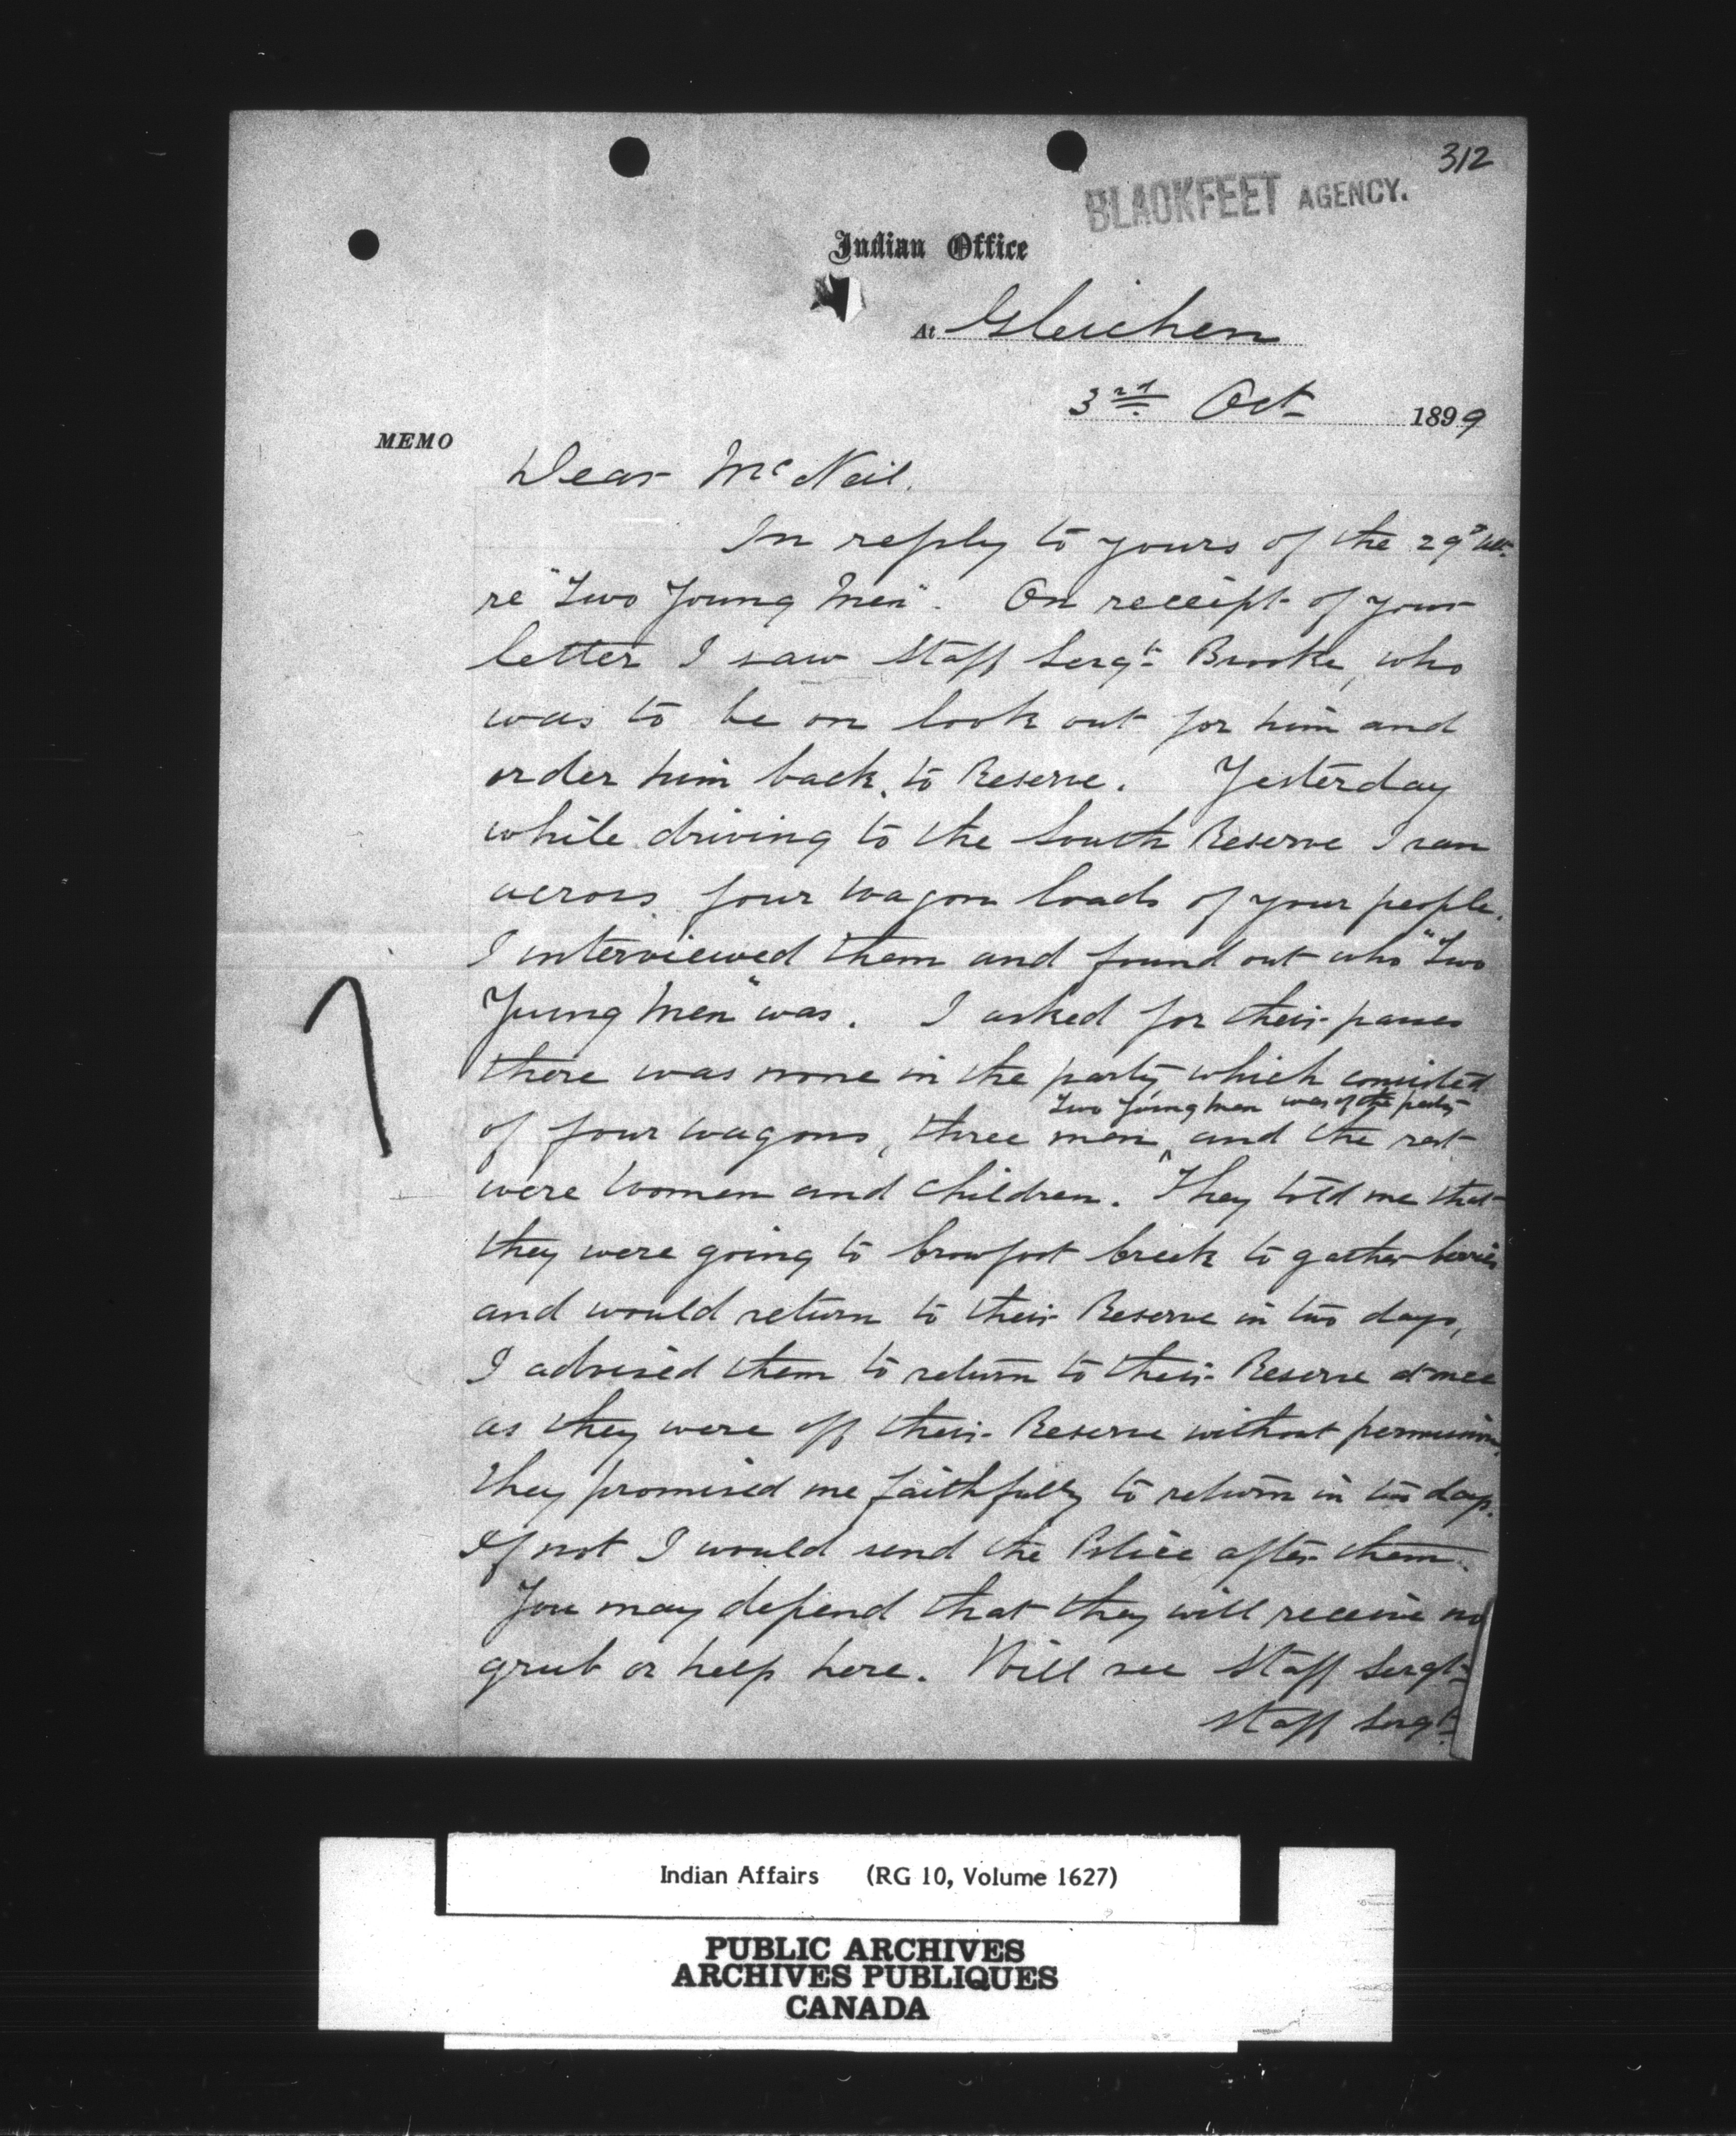 312
BLACKFEET AGENCY.
Indian Office
At Gleichen
3rd Oct 1899
MEMO
Dear McNeil.
In reply to yours of the 29th ult.
re "Two Young Men". On receipt of your
letter I saw Staff Sergt. Brooke, who
was to be on look out for him and
order him back to Reserve. Yesterday
while driving to the South Reserve I ran
across four wagon loads of your people.
I interviewed them and found out who "Two
Young Men" was. I asked for their passes
there was none in the party which consisted
Two Young Men was of the party
of four wagons, three men, and the rest
were women and children. They told me that
they were going to Crowfoot Creek to gather berries
and would return to their Reserve in two days,
I advised them to return to their Reserve at once
as they were off their Reserve without permission.
They promised me faithfully to return in two days.
If not I would send the Police after them.
You may depend that they will receive no
grub or help here. Will see Staff Sergt.
Staff Sergt.
Indian Affairs (RG 10, Volume 1627)
PUBLIC ARCHIVES
ARCHIVES PUBLIQUES
CANADA